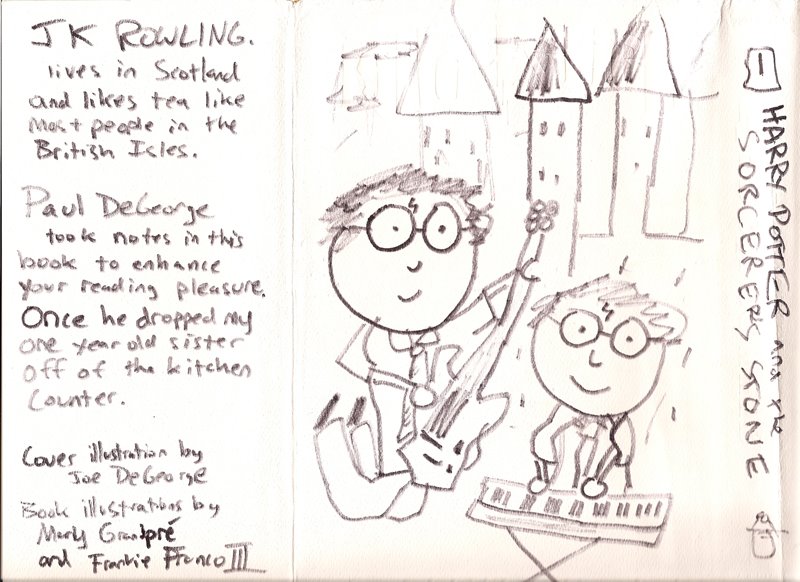 JK ROWLING.
lives in Scotland
and likes tea like
most people in the
British Isles.
Paul DeGeorge
took notes in this
book to enhance
your reading pleasure.
Once he dropped my
one year old sister
off of the kitchen
counter.
Cover illustration by
Joe DeGeorge
Book illustrations by
Mary Grandpré
and Frankie Franco III
HARRY POTTER and the
SORCERERS STONE